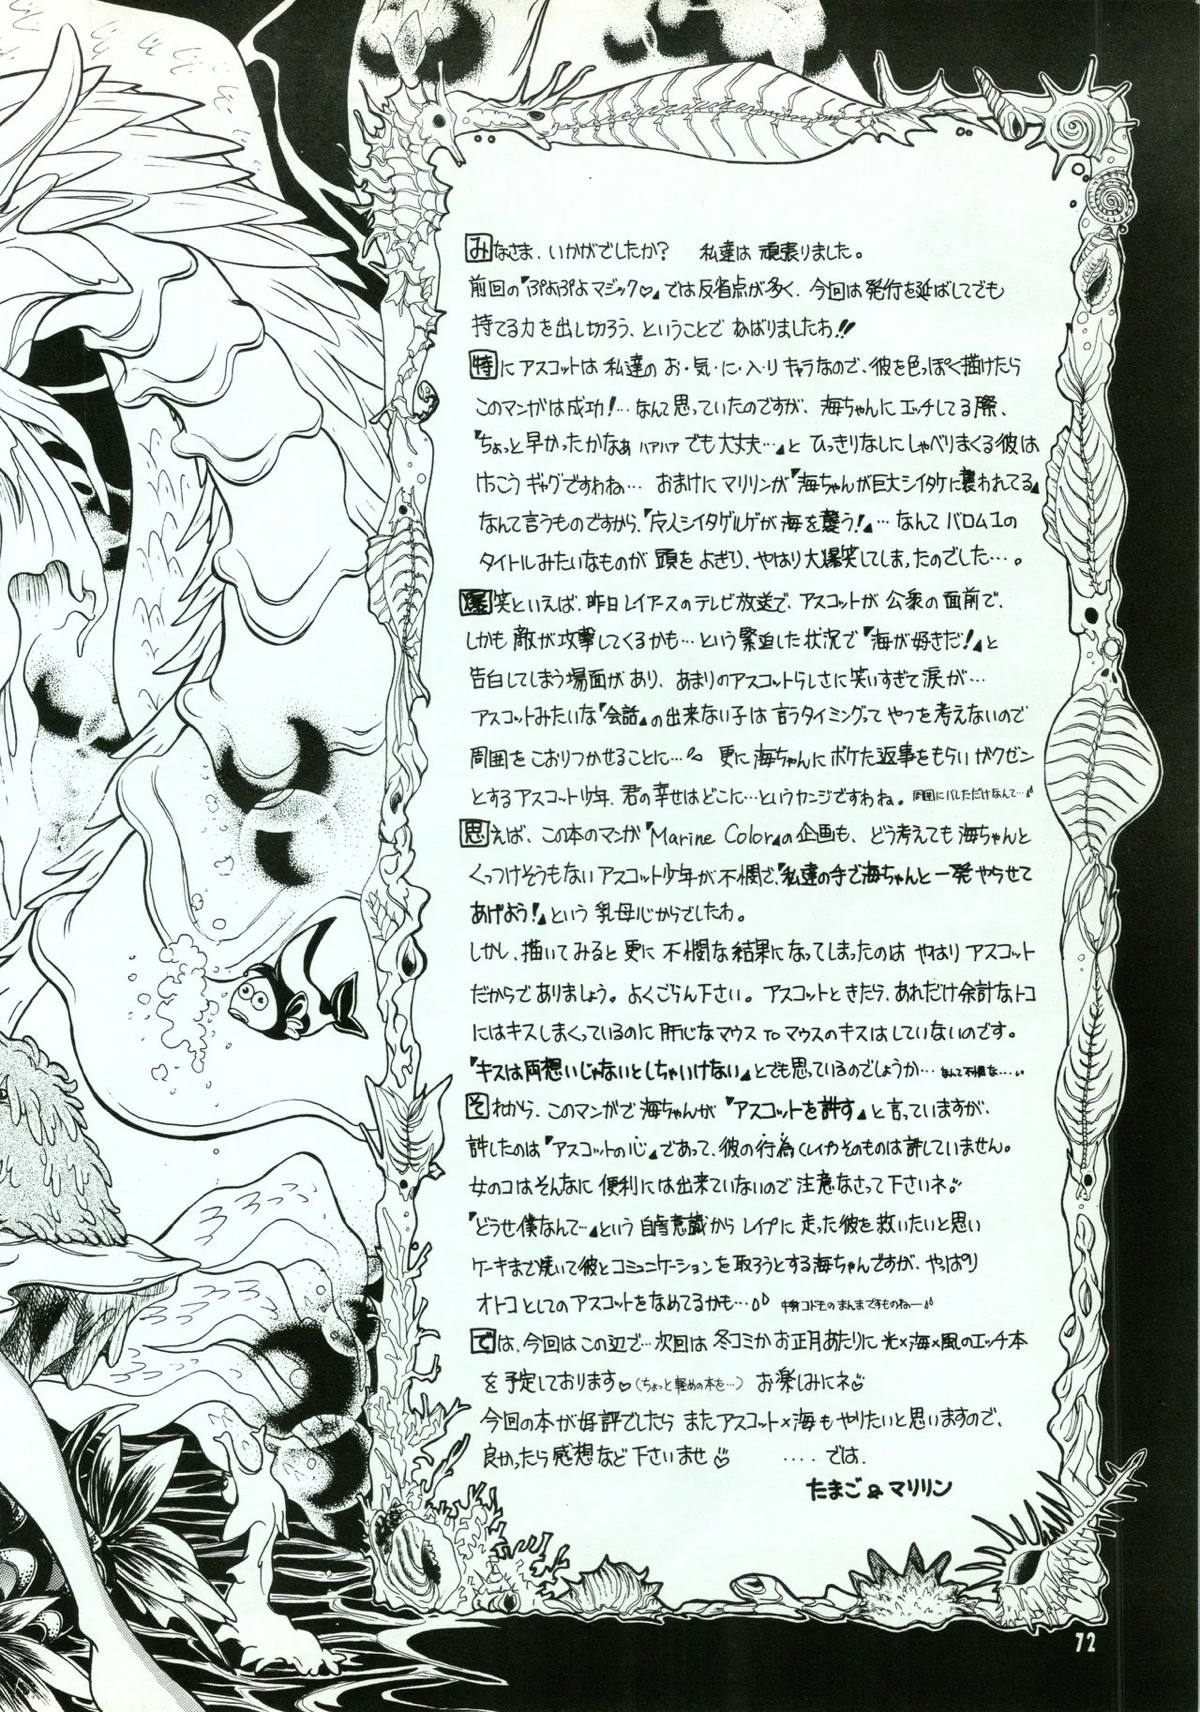 みなさま、いかがでしたか?　私達は頑張りました。
前回の『ぷよぷよマジック♡』では反省点が多く、今回は発行を延ばしてでも
持てる力を出し切ろう、ということでねばりましたわ!!
特にアスコットは私達のお・気・に・入・りキャラなので、彼を色っぽく描けたら
このマンガは成功!…なんて思っていたのですが、海ちゃんにエッチしてる際、
『ちょっと早かったかなぁ ハアハア でも大丈夫…』とひっきりなしにしゃべりまくる彼は
けっこうギャグですわね…　おまけにマリリンが『海ちゃんが巨大シイタケに襲われてる』
なんて言うものですから、『 人シイタゲルゲが海を襲う!』…なんてバロムユの
タイトルみたいなものが頭をよぎり、やはり大爆笑してしまったのでした…。
爆笑といえば、昨日レイアースのテレビ放送で、アスコットが公衆の面前で、
しかも敵が攻撃してくるかも…という緊迫した状況で『海が好きだ!』と
告白してしまう場面があり、あまりのアスコットらしさに笑いすぎて涙が…
アスコットみたいな『会話』の出来ない子は言うタイミングってやつを考えないので
周囲をこおりつかせることに…　更に海ちゃんにボケた返事をもらいガクゼン
とするアスコット少年、君の幸せはどこに…というカンジですわね。周囲にバレただけなんて…
思えば、この本のマンガ『Marine Color』の企画も、どう考えても海ちゃんと
くっつけそうもないアスコット少年が不憫で、『私達の手で海ちゃんと一発やらせて
あげよう!』という乳母心からでしたわ。
しかし、描いてみると更に不憫な結果になってしまったのはやはりアスコット
だからでありましょう。よくごらん下さい。アスコットときたら、あれだけ余計なトコ
にはキスしまくっているのに肝心なマウスtoマウスのキスはしていないのです。
『キスは両想いじゃないとしちゃいけない』とでも思っているのでしょうか…なんて不憫な…
それから、このマンガで海ちゃんが『アスコットを許す』と言っていますが、
許したのは『アスコットの心』であって、彼の行為(レイプ)そのものは許していません。
女のコはそんなに便利には出来ていないので注意なさって下さいネ
『どうせ僕なんて…』という自虐意識からレイプに走った彼を救いたいと思い
ケーキまで焼いて彼とコミュニケーションを取ろうとする海ちゃんですが、やっぱり
オトコとしてのアスコットをなめてるかも…　中身コドモのまんまですものねー
では、今回はこの辺で…次回は冬コミかお正月あたりに光×海×風のエッチ本
を予定しております♡(ちょっと軽めの本を…)お楽しみにネ♡
今回の本が好評でしたらまたアスコット×海もやりたいと思いますので、
良かったら感想など下さいませ♡　……では。
たまご&マリリン
72